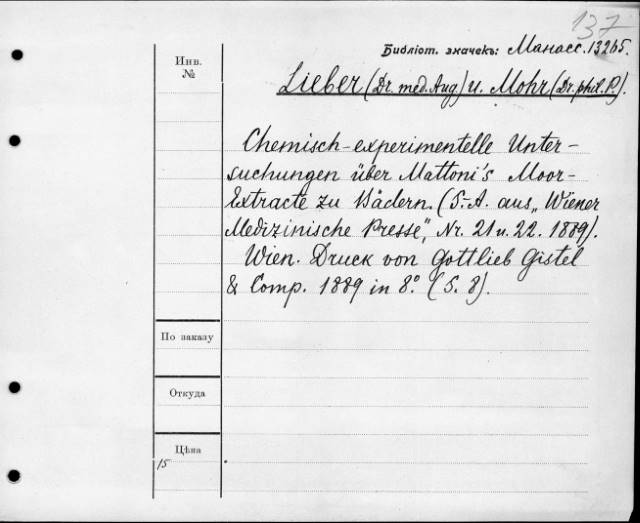 137
Библіот. значекъ: Манасс. 13265.
Инв.
№
Lieber (Dr. med. Aug) u. Mohr (Dr. phil. P.).
Chemisch-experimentelle Unter-
suchungen über Mattoni's Moor-
Extracte zu Bädern. (S.-A. aus „Wiener
Medizinische Presse", Nr. 21 u. 22. 1889).
Wien. Druck von Gottlieb Gistel
& Comp. 1889 in 8°. (S. 8).
По заказу
Откуда
Цѣна
15